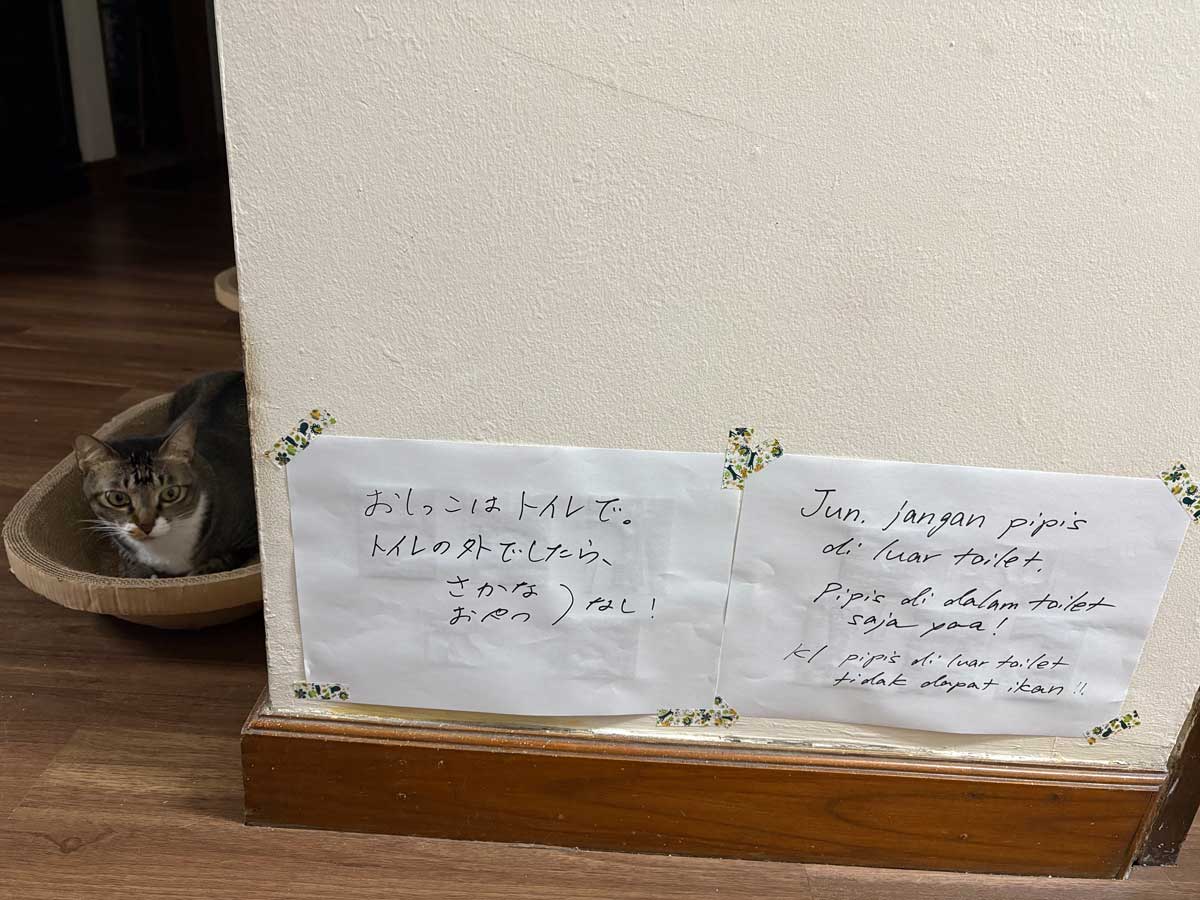 おしっこは トイレで。
トイレの外でしたら、
さかな
おやつ ) なし!
Jun. jangan pipis
di luar toilet.
Pipis di dalam toilet
saja yaa!
Kl pipis di luar toilet
tidak dapat ikan !!